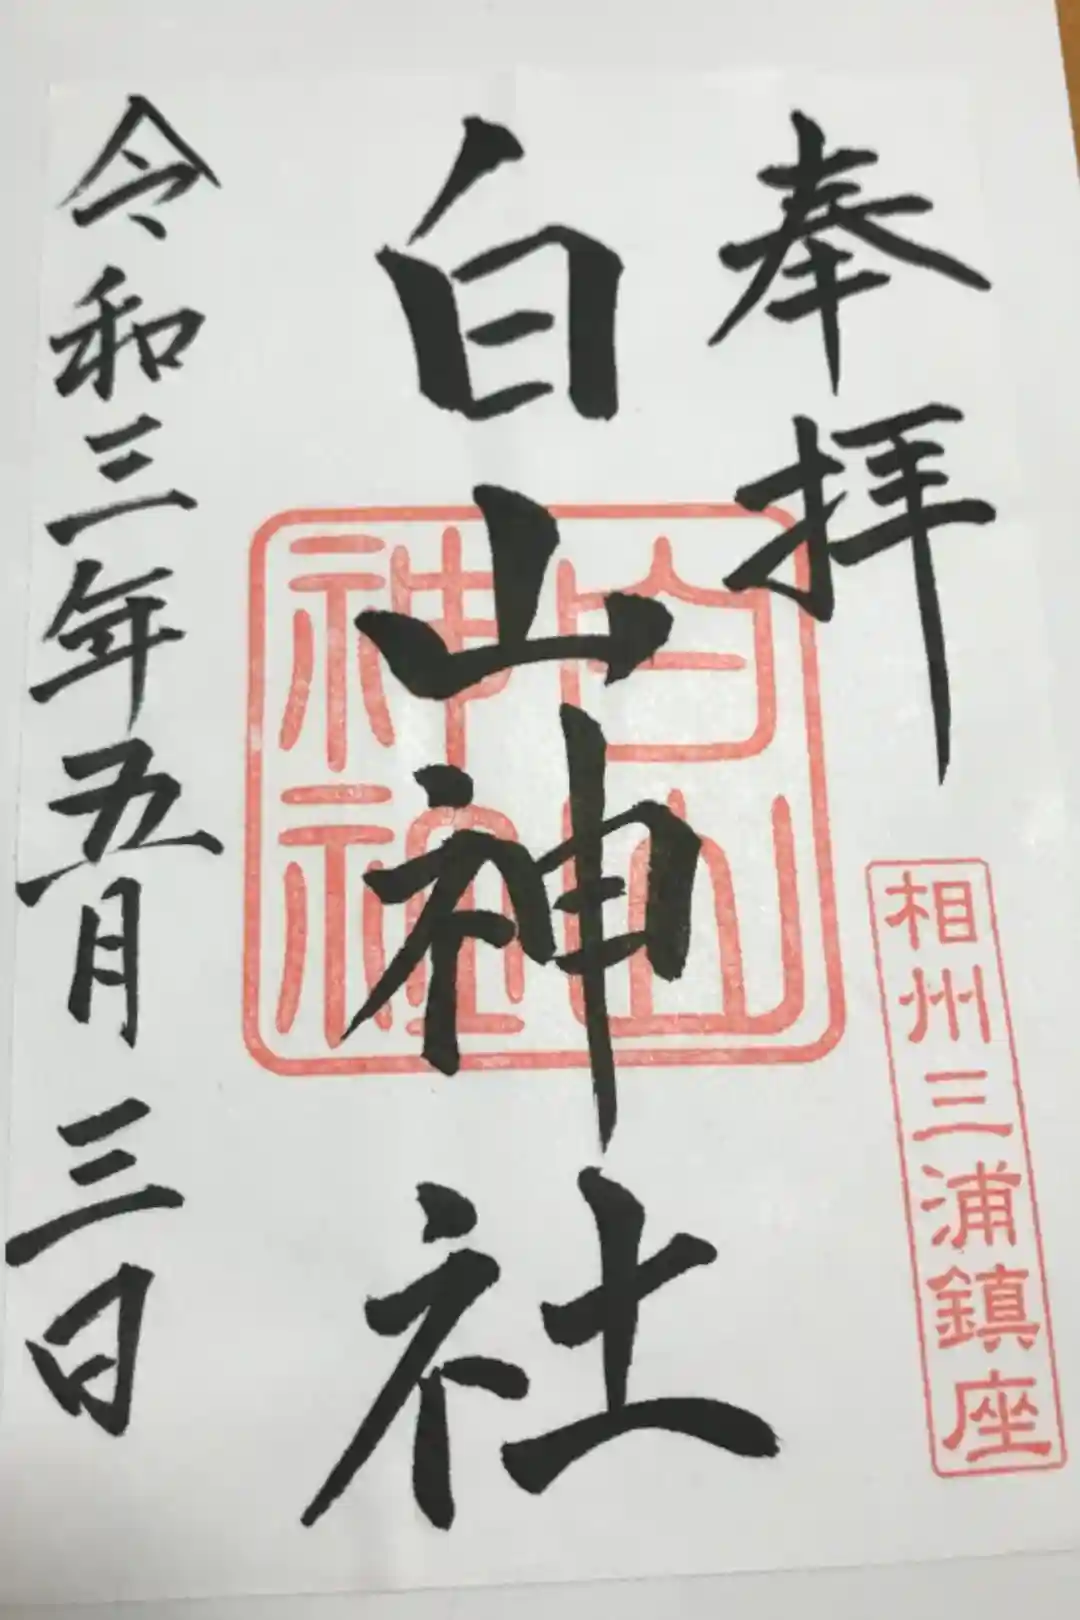 奉拝
相州三浦鎮座
白山神社
白山
神社
令和三年五月三日